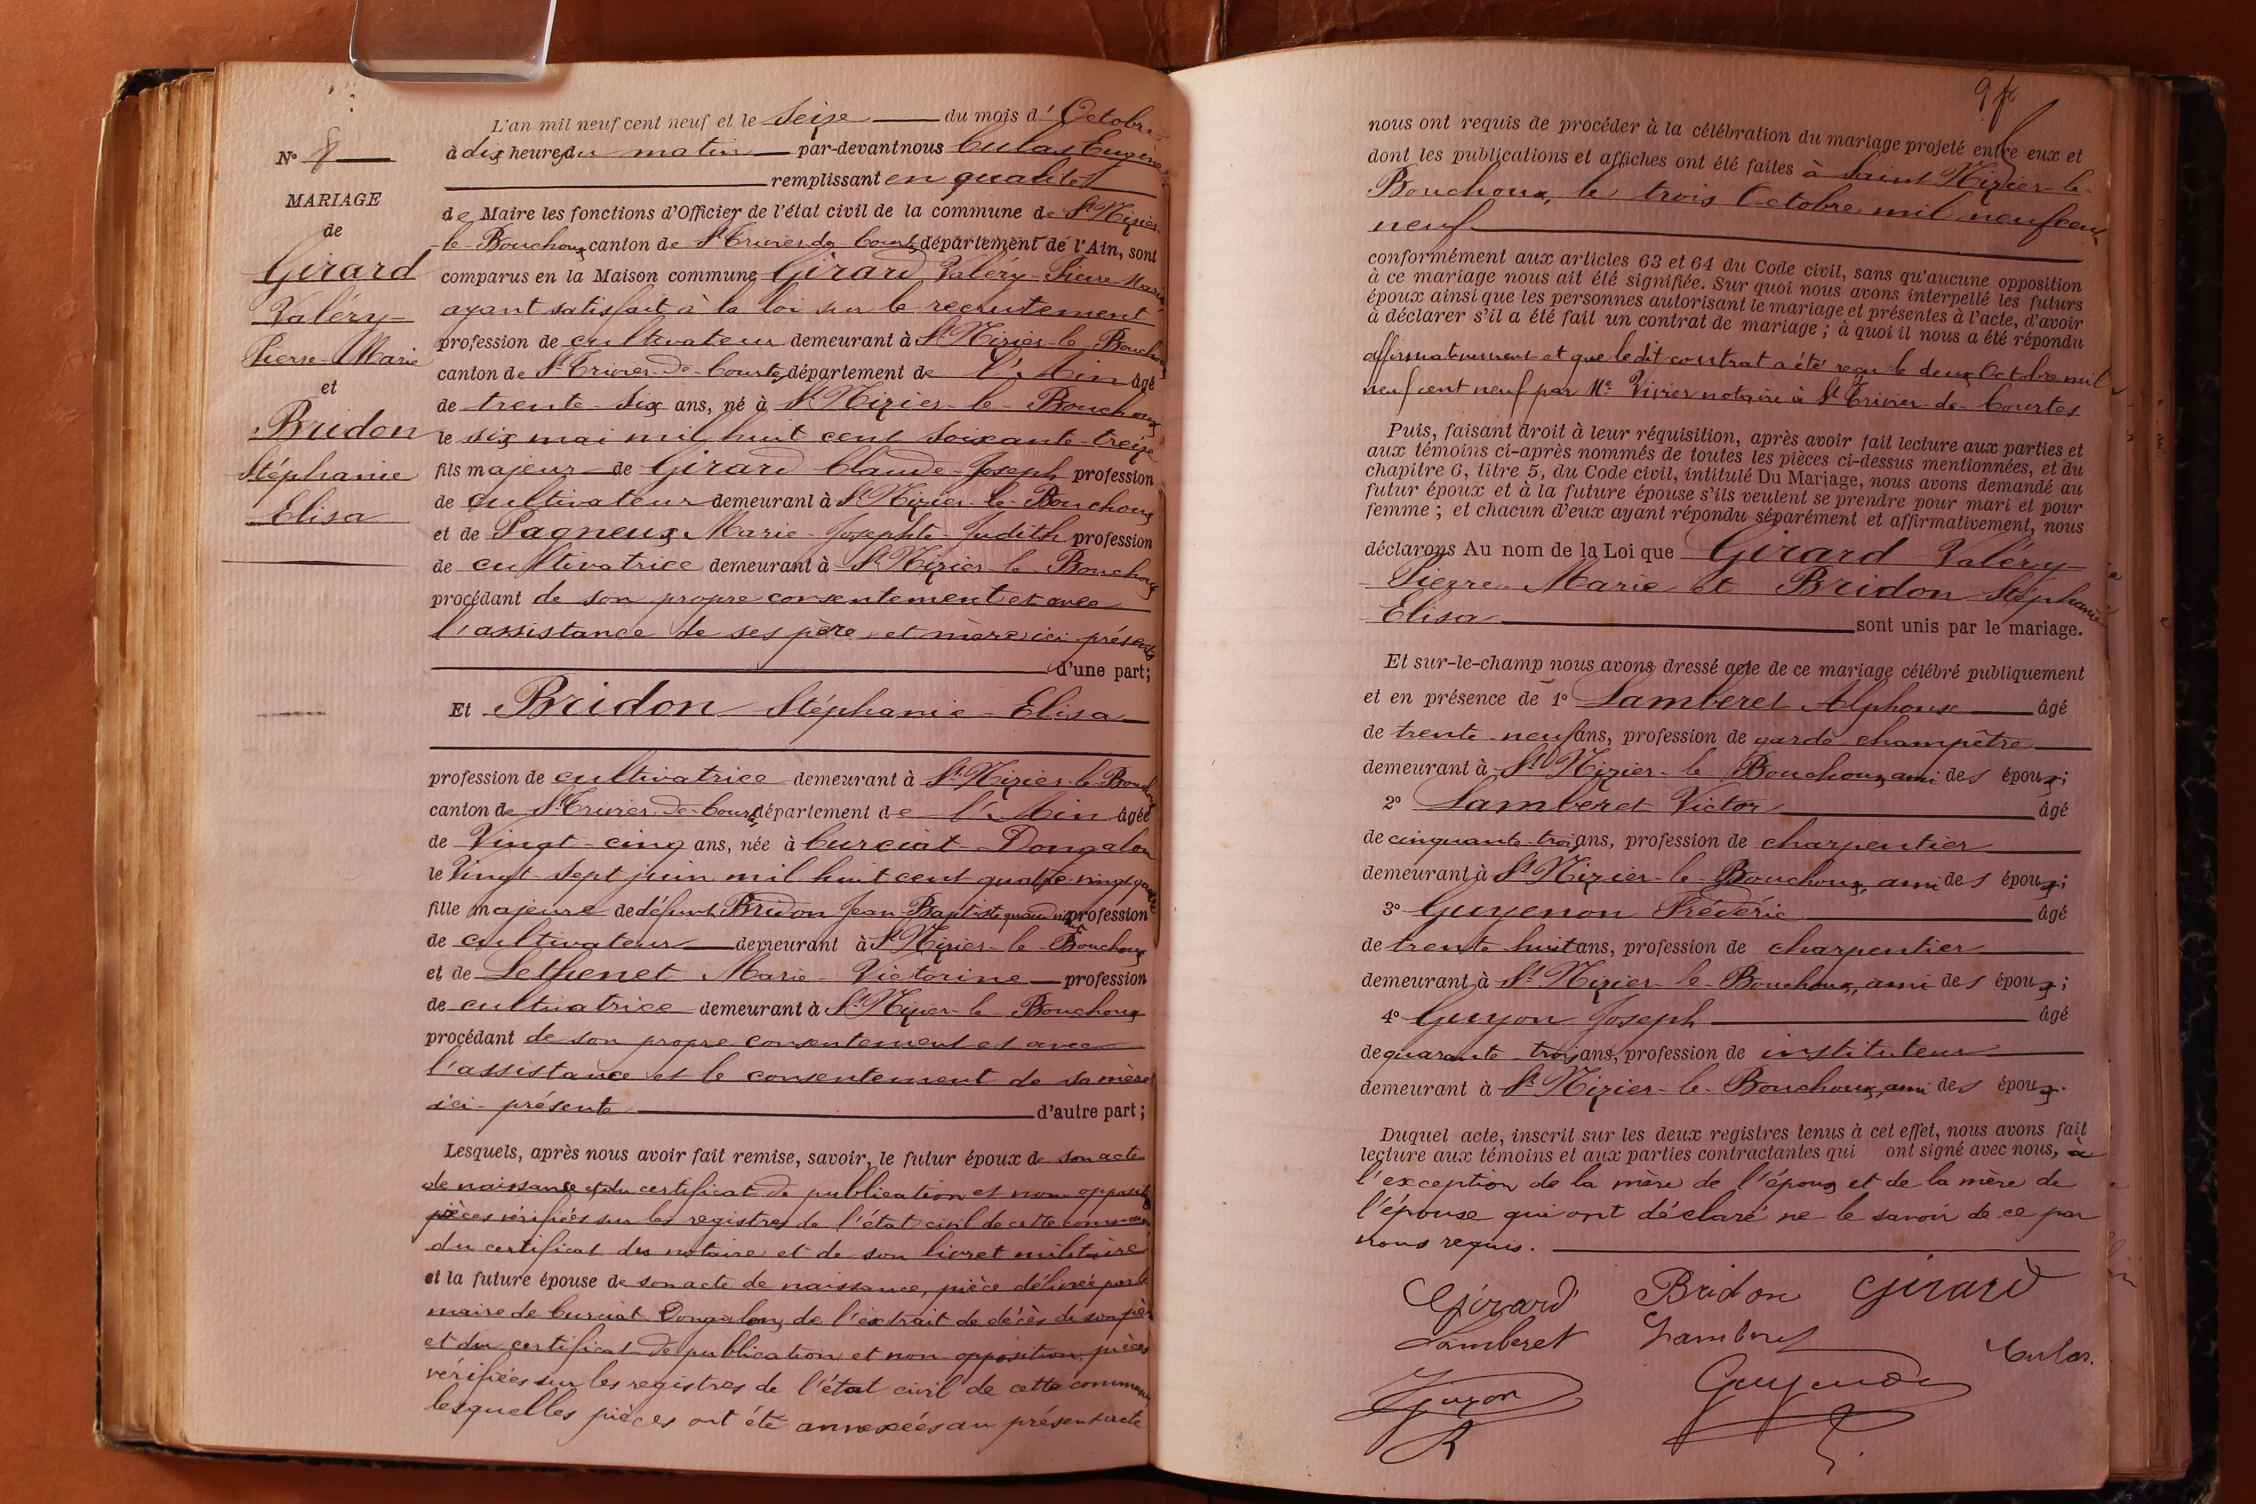 N° 8
MARIAGE
de
Girard
Valéry
Pierre-Marie
et
Bridon
Stéphanie
Elisa
L'an mil neuf cent neuf et le seize du mois d'Octobre
à dix heures du matin par-devant nous Culas Eugène
remplissant en qualité
de Maire les fonctions d'Officier de l'état civil de la commune de St Nizier-
le-Bouchoux canton de St Trivier de Courtes département de l'Ain, sont
comparus en la Maison commune Girard Valéry-Pierre-Marie
ayant satisfait à la loi sur le recrutement
profession de cultivateur demeurant à St Nizier-le-Bouchoux
canton de St Trivier-de-Courtes département de l'Ain âgé
de trente-six ans, né à St Nizier-le-Bouchoux
le six mai mil huit cent soixante-treize
fils majeur de Girard Claude-Joseph profession
de cultivateur demeurant à St Nizier-le-Bouchoux
et de Pagneux Marie-Josephte-Judith profession
de cultivatrice demeurant à St Nizier-le-Bouchoux
procédant de son propre consentement et avec
l'assistance de ses père et mère ici présents
d'une part;
Et Bridon Stéphanie-Elisa
profession de cultivatrice demeurant à St Nizier-le-Bouchoux
canton de St Trivier-de-Courtes département de l'Ain âgée
de Vingt-cinq ans, née à Curciat-Dongalon
le Vingt-sept juin mil huit cent quatre-vingt-quatre
fille majeure de défunt Bridon Jean-Baptiste quand vivait profession
de cultivateur demeurant à St Nizier-le-Bouchoux
et de Lethenet Marie-Victorine profession
de cultivatrice demeurant à St Nizier-le-Bouchoux
procédant de son propre consentement et avec
l'assistance et le consentement de sa mère
ici-présente d'autre part;
Lesquels, après nous avoir fait remise, savoir, le futur époux de son acte
de naissance et du certificat de publication et non opposition
pièces vérifiées sur les registres de l'état civil de cette commune
du certificat du notaire et de son livret militaire
et la future épouse de son acte de naissance, pièce délivrée par le
maire de Curciat Dongalon, de l'extrait de décès de son père
et du certificat de publication et non opposition, pièces
vérifiées sur les registres de l'état civil de cette commune
lesquelles pièces ont été annexées au présent acte
9 fe
nous ont requis de procéder à la célébration du mariage projeté entre eux et
dont les publications et affiches ont été faites à Saint Nizier-le-
Bouchoux, le trois Octobre mil neuf cent
neuf
conformément aux articles 63 et 64 du Code civil, sans qu'aucune opposition
à ce mariage nous ait été signifiée. Sur quoi nous avons interpellé les futurs
époux ainsi que les personnes autorisant le mariage et présentes à l'acte, d'avoir
à déclarer s'il a été fait un contrat de mariage; à quoi il nous a été répondu
affirmativement et que le dit contrat a été reçu le deux Octobre mil
neuf cent neuf par Me Vivier notaire à St Trivier-de-Courtes
Puis, faisant droit à leur réquisition, après avoir fait lecture aux parties et
aux témoins ci-après nommés de toutes les pièces ci-dessus mentionnées, et du
chapitre 6, titre 5, du Code civil, intitulé Du Mariage, nous avons demandé au
futur époux et à la future épouse s'ils veulent se prendre pour mari et pour
femme; et chacun d'eux ayant répondu séparément et affirmativement, nous
déclarons Au nom de la Loi que Girard Valéry
Pierre-Marie et Bridon Stéphanie
Elisa sont unis par le mariage.
Et sur-le-champ nous avons dressé acte de ce mariage célébré publiquement
et en présence de 1° Lamberet Alphonse âgé
de trente-neuf ans, profession de garde champêtre
demeurant à St Nizier-le-Bouchoux, ami des époux;
2° Lamberet Victor âgé
de cinquante-trois ans, profession de charpentier
demeurant à St Nizier-le-Bouchoux, ami des époux;
3° Guyenon Frédéric âgé
de trente-huit ans, profession de charpentier
demeurant à St Nizier-le-Bouchoux, ami des époux;
4° Guyon Joseph âgé
de quarante-trois ans, profession de instituteur
demeurant à St Nizier-le-Bouchoux, ami des époux.
Duquel acte, inscrit sur les deux registres tenus à cet effet, nous avons fait
lecture aux témoins et aux parties contractantes qui ont signé avec nous, à
l'exception de la mère de l'époux et de la mère de
l'épouse qui ont déclaré ne le savoir de ce par
nous requis.
Girard Bridon Girard
Lamberet Lamberet Culas.
Guyon Guyenon